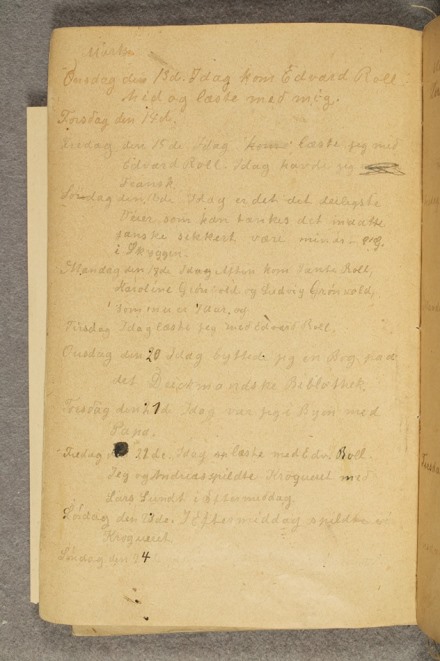 Onsdag den 13d. Idag kom Edvard Roll
hid og læste med mig.
Torsdag den 14d.
Fredag den 15de. Idag læste jeg med
Edvard Roll. Idag havde jeg
Fransk
Søndag den Idag er det det deiligste
Veier, som kan tænkes det maatte
ganske sikkert være mindst
i Skyggen.
Mandag den Idag Aften kom Tante Roll,
Karoline Grønvold og Ludvig Grønvold,

Tirsdag Idag læste jeg med Edvard Roll.
Onsdag den 20 Idag byttede jeg en Bog paa
det Bibliothek.
Torsdag den 21d Idag var jeg i Byen med
Papa.
Fredag 22de. Idag læste med Edv. Roll.
Jeg og Andreas spildte Kroquet med
Lars Lundt i Eftermiddag
Lørdag den 23de. I Eftermiddag spildte vi
Kroquet.
Søndag den 24